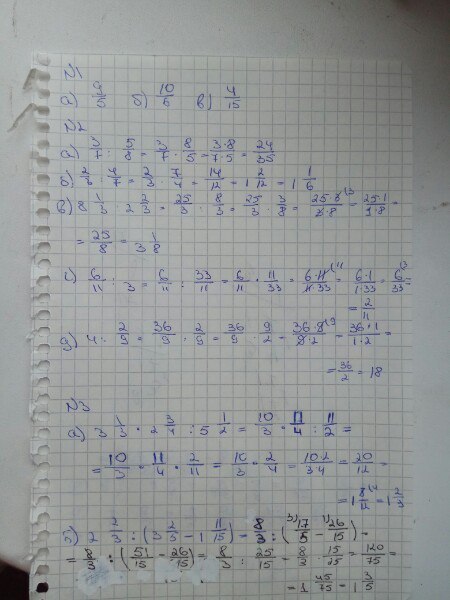 №1
а) 9/5 б) 10/6 в) 4/15
№2
а) 3/7 : 5/8 = 3/7 · 8/5 = 3·8/7·5 = 24/35
б) 2/3 : 4/7 = 2/3 · 7/4 = 14/12 = 1 2/12 = 1 1/6
в) 8 1/3 : 2 2/3 = 25/3 : 8/3 = 25/3 · 3/8 = 25·3/3·8 = 25·1/1·8 =
= 25/8 = 3 1/8
г) 6/11 : 3 = 6/11 : 33/11 = 6/11 · 11/33 = 6·11/11·33 = 6·1/1·33 = 6/33 =
= 2/11
д) 4 : 2/9 = 36/9 : 2/9 = 36/9 · 9/2 = 36·9/9·2 = 36·1/1·2 =
= 36/2 = 18
№3
а) 3 1/3 · 2 3/4 : 5 1/2 = 10/3 · 11/4 : 11/2 =
= 10/3 · 11/4 · 2/11 = 10/3 · 2/4 = 10·2/3·4 = 20/12 =
= 1 8/12 = 1 2/3
б) 2 2/3 : (3 2/5 - 1 11/15) = 8/3 : (17/5 - 26/15) =
= 8/3 : (51/15 - 26/15) = 8/3 : 25/15 = 8/3 · 15/25 = 120/75 =
= 1 45/75 = 1 3/5